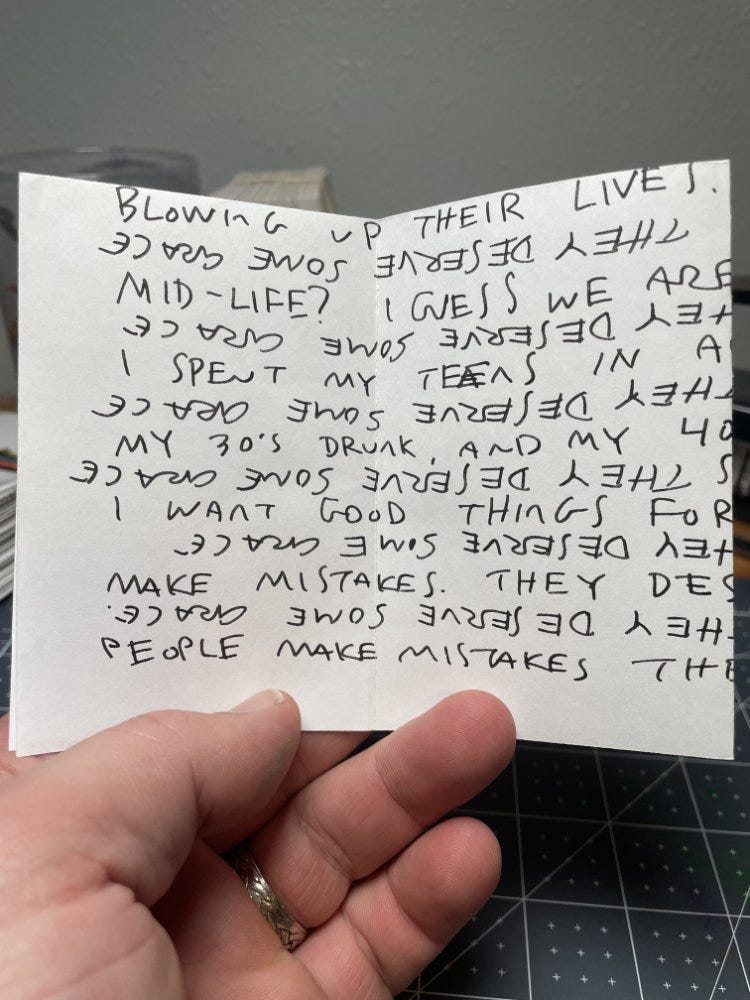 BLOWING UP THEIR LIVES.
THEY DESERVE SOME GRACE
MID-LIFE? I GUESS WE ARE
HEY DESERVE SOME GRACE
I SPENT MY TEENS IN A
THEY DESERVE SOME GRACE
MY 30'S DRUNK, AND MY 40
S THEY DESERVE SOME GRACE
I WANT GOOD THINGS FOR
HEY DESERVE SOME GRACE
MAKE MISTAKES. THEY DES
HEY DESERVE SOME GRACE.
PEOPLE MAKE MISTAKES THE